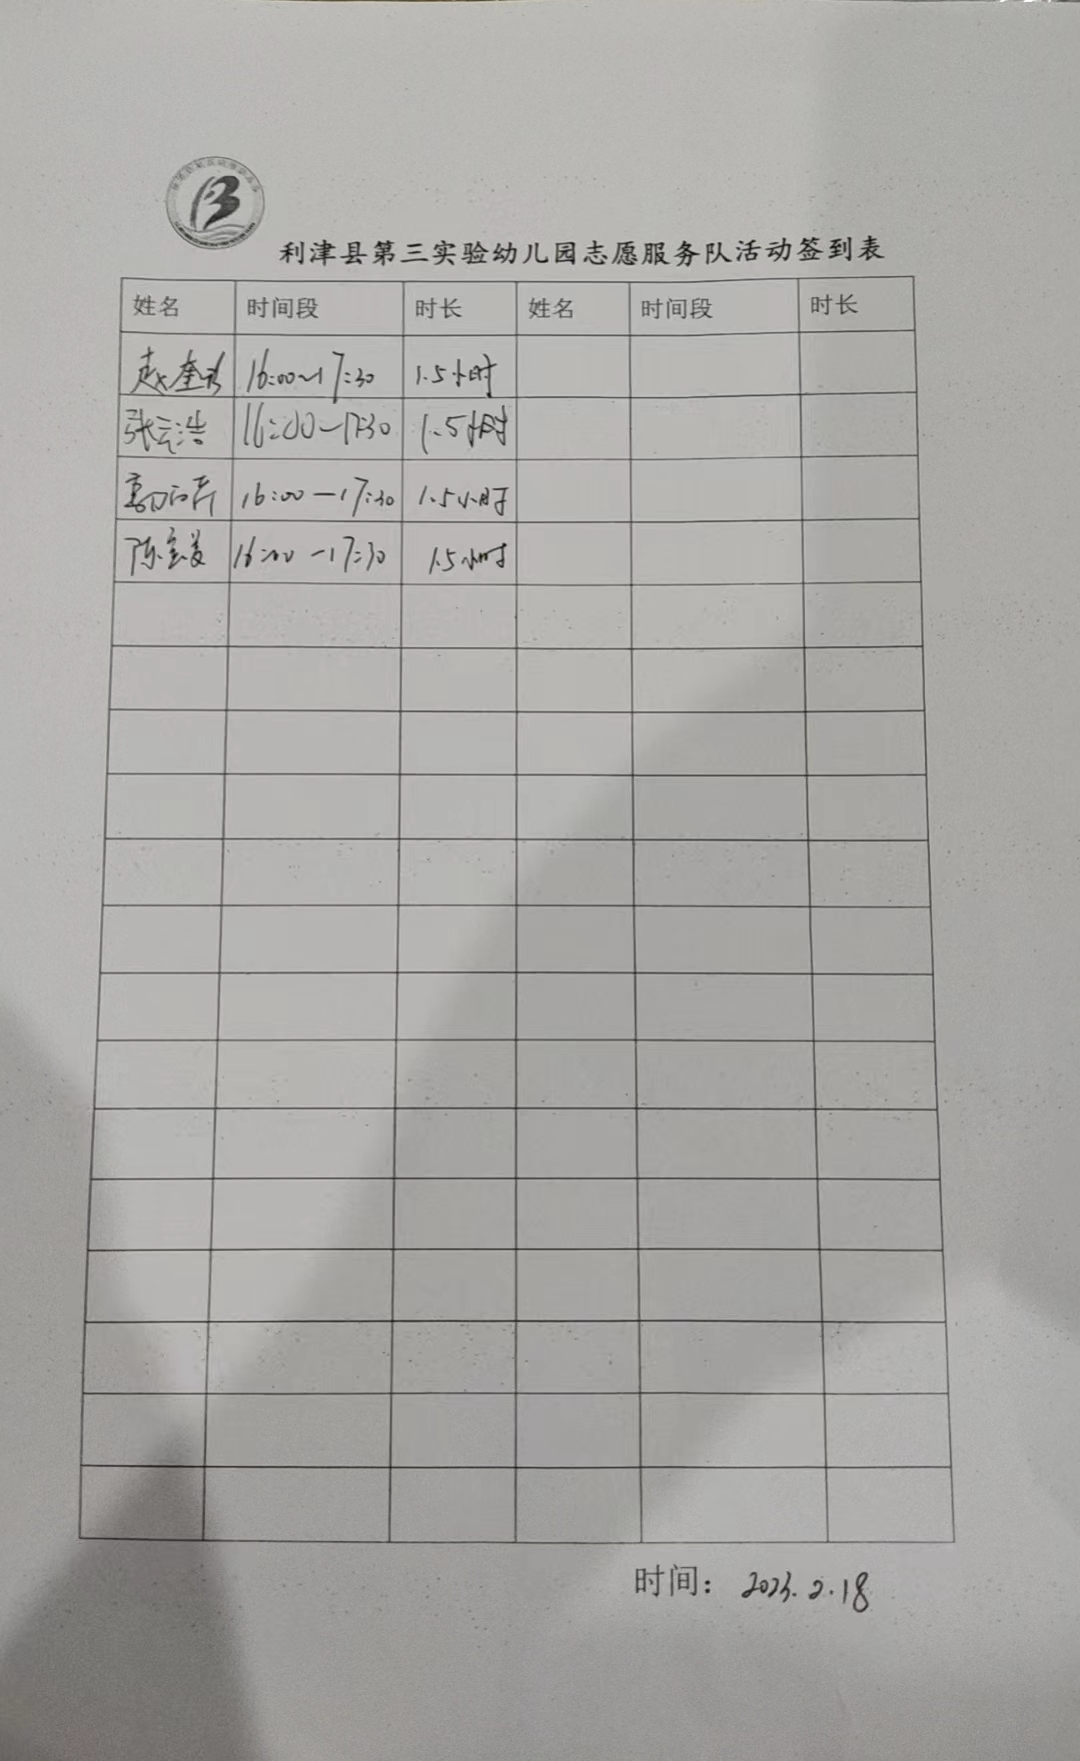 利津县第三实验幼儿园志愿服务队活动签到表
姓名 时间段 时长 姓名 时间段 时长
赵奎 16:00~17:30 1.5小时
张云浩 16:00—17:30 1.5小时
16:00—17:30 1.5小时
陈 16:00—17:30 1.5小时
时间: 2023.2.18